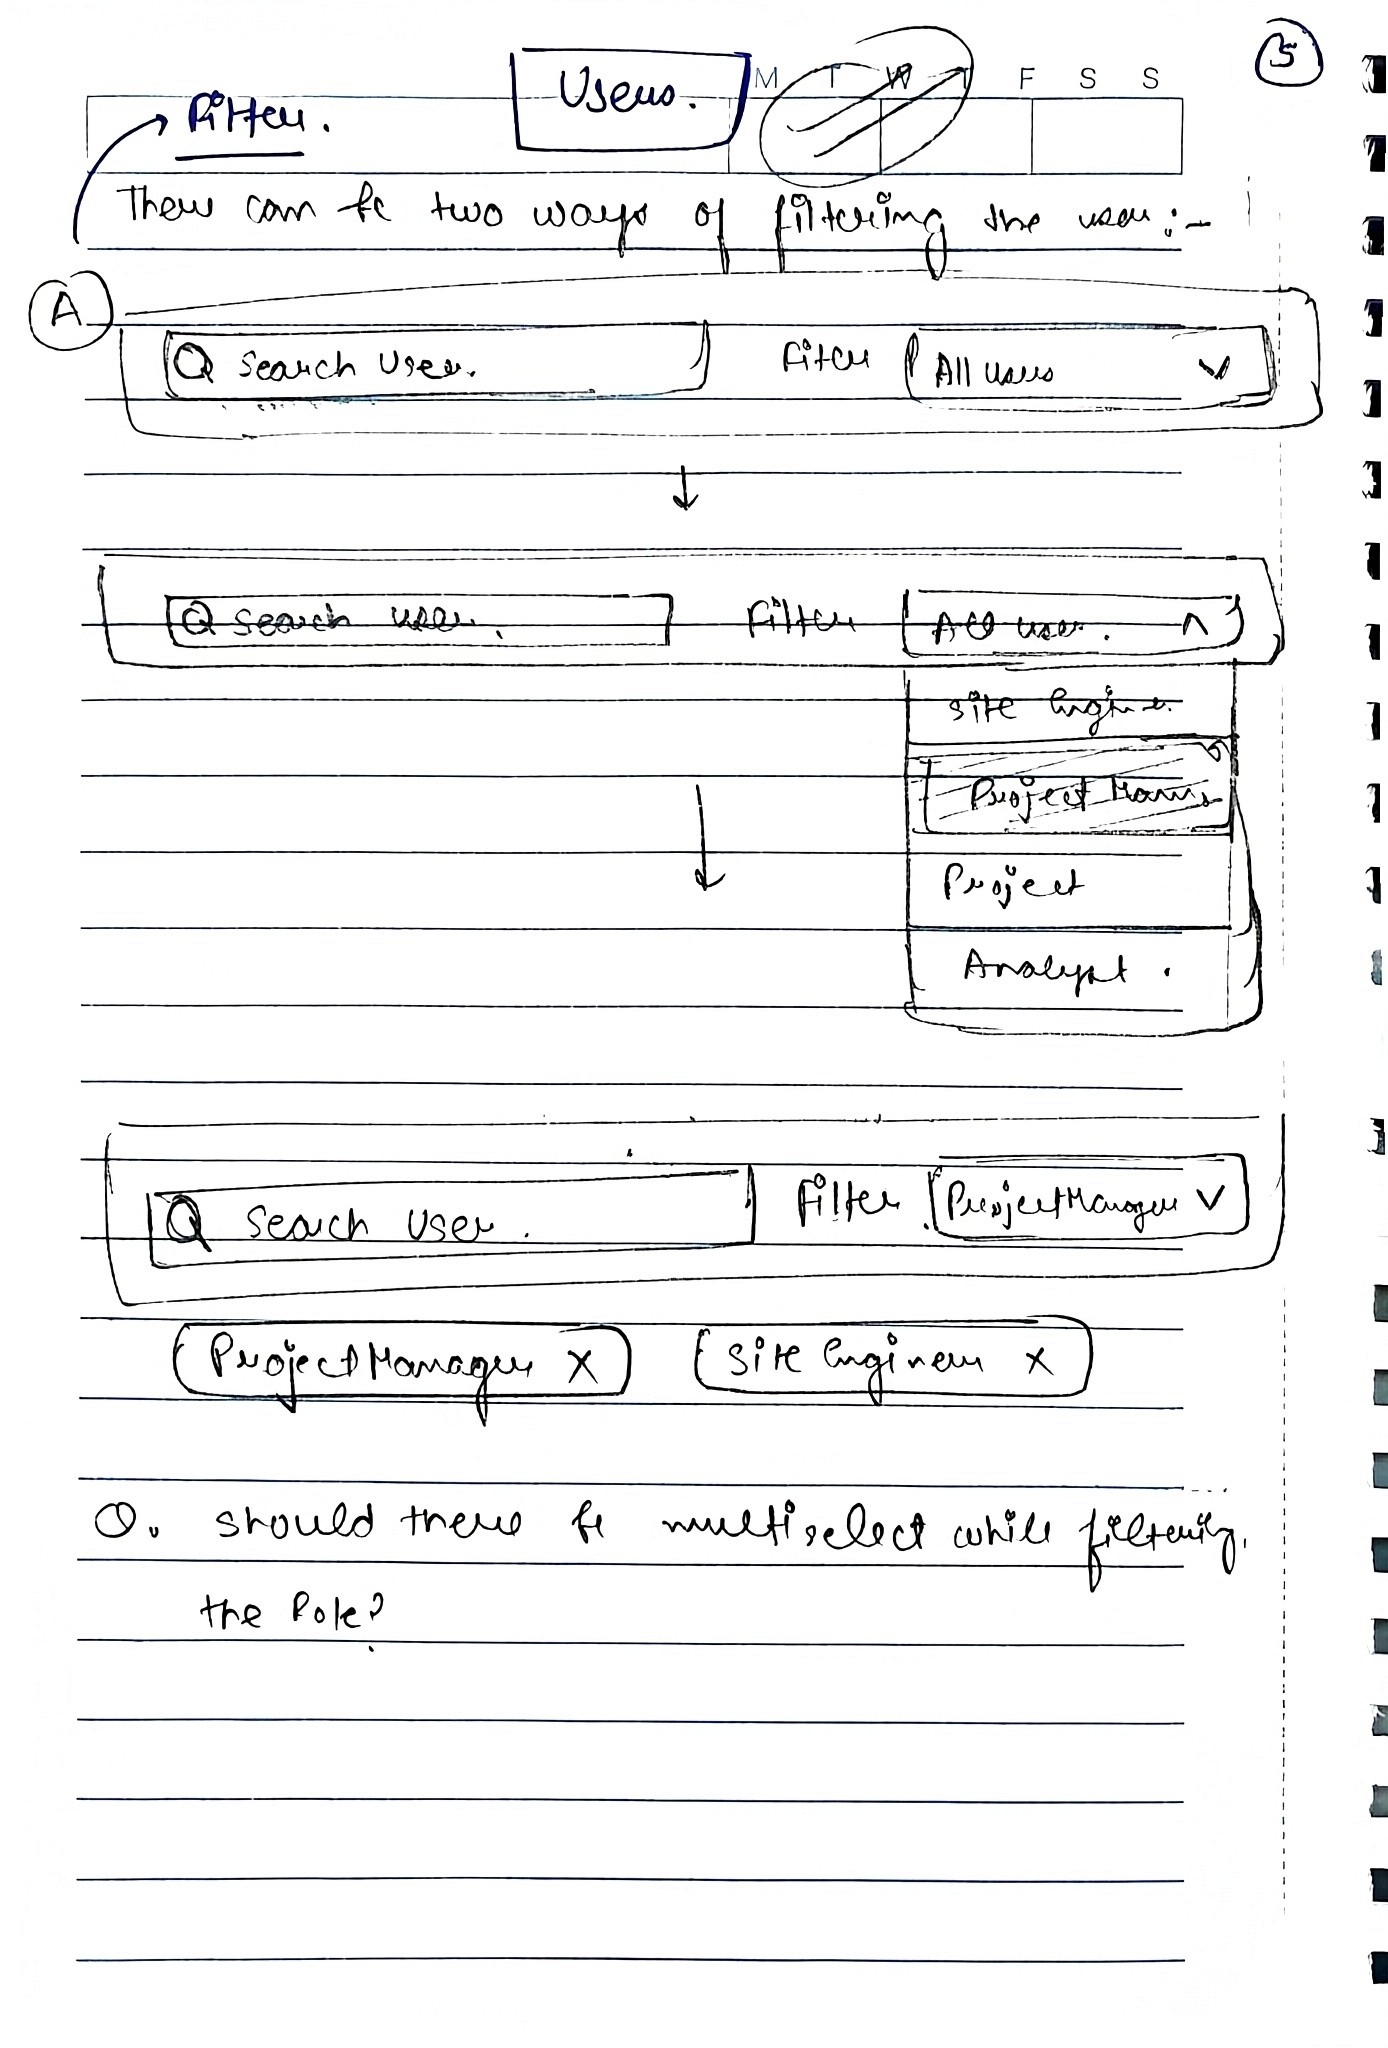 5
Users.
M T W T F S S
Filter.
There can be two ways of filtering the user :-
A
Search User. Filter All users
Search user. Filter All user.
Site Engine.
Project Man
Project
Analyst.
Search User. Filter Project Manager
Project Manager X Site Engineer X
Q. should there be multiselect while filtering.
the Role?